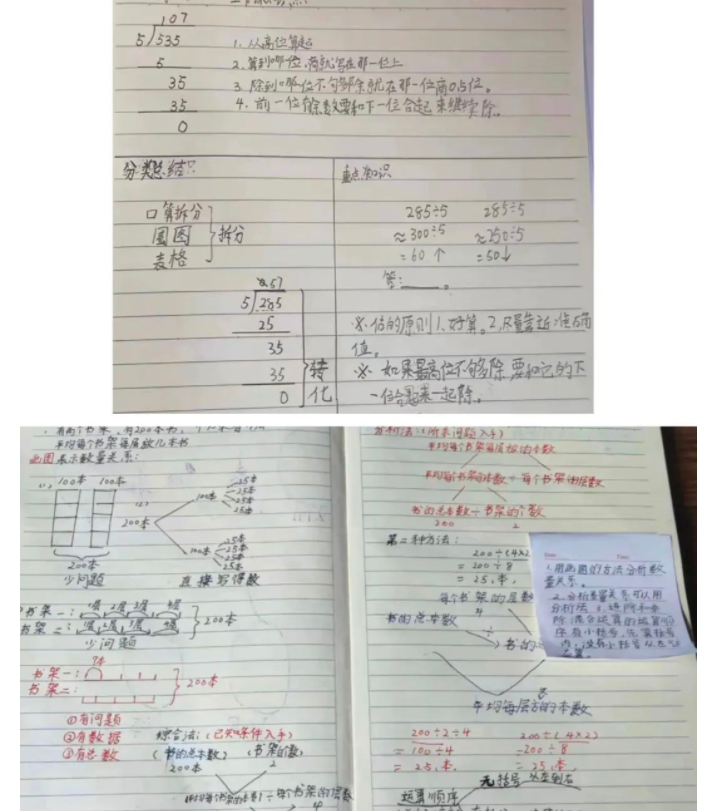 107
5)535
5
35
35
0
1. 从高位算起
2. 算到哪位,商就写在那一位上
3. 除到哪位不够除就在那一位商0占位。
4. 前一位有余数要和下一位合起来继续除。
分类总结
口算拆分
圈图 拆分
表格
57
5)285
25
35
35
0
转化
重点知识
285÷5 285÷5
≈300÷5 ≈250÷5
=60↑ =50↓
答:____。
※估的原则1.好算。2.尽量靠近准确
值。
※ 如果最高位不够除要和它的下
一位合起来一起除。
平均每个书架每层放几本书
画图表示数量关系:
(1) 100本 100本
200本
少问题
(2)
200本
100本
25本
25本
25本
25本
100本
25本
25本
25本
25本
直接写得数
书架一: 1层 2层 3层 4层
书架二: 1层 2层 3层 4层
200本
少问题
?本
书架一:
书架二:
200本
①有问题
②有数据
③有总数
综合法:(已知条件入手)
(书的总本数) (书架的数)
200本 2
平均每个书架的本数 ÷ 每个书架的层数
4
分析法:(所求问题入手)
平均每个书架每层放的本数
平均每个书架的本数 ÷ 每个书架的层数
书的总本数 ÷ 书架的个数
200 2
第二种方法:
200÷(4×2)
=200÷8
=25(本)
每个书架的层数
4
书的总本数
÷
8
平均每层放的本数
200÷2÷4 200÷(4×2)
=100÷4 =200÷8
=25(本) =25(本)
无括号 从左到右
运算顺序
1.用画图的方法分析数
量关系。
2.分析数量关系可以用
分析法
3.连除和乘
除混合运算的运算顺
序有小括号,先算括号
内,没有小括号从左